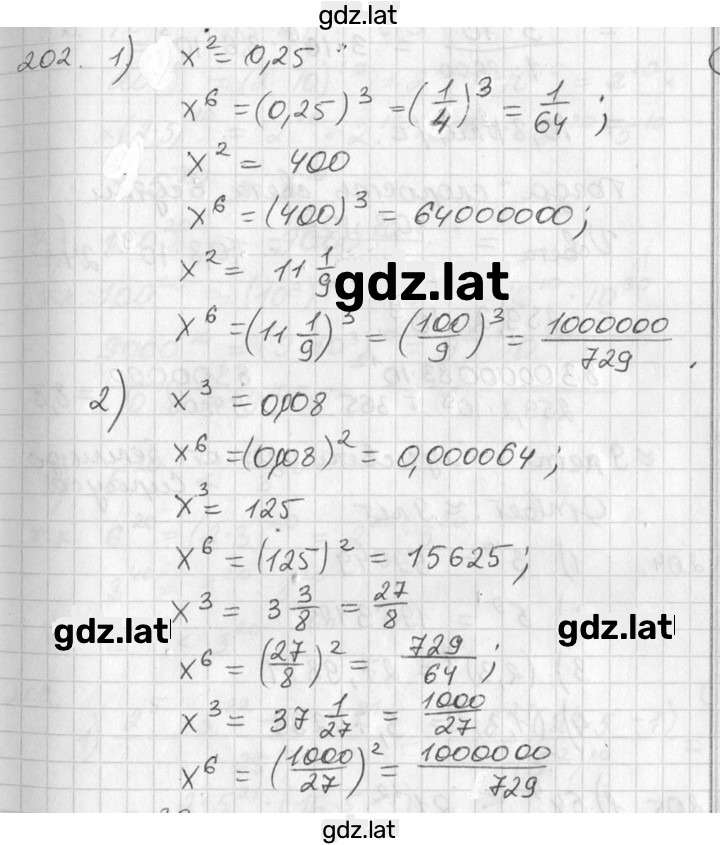 gdz.lat
202. 1) x² = 0,25
x⁶ = (0,25)³ = (1/4)³ = 1/64 ;
x² = 400
x⁶ = (400)³ = 64000000;
x² = 11 1/9
gdz.lat
x⁶ = (11 1/9)³ = (100/9)³ = 1000000/729 .
2) x³ = 0,08
x⁶ = (0,08)² = 0,000064;
x³ = 125
x⁶ = (125)² = 15625;
x³ = 3 3/8 = 27/8
gdz.lat gdz.lat
x⁶ = (27/8)² = 729/64 ;
x³ = 37 1/27 = 1000/27
x⁶ = (1000/27)² = 1000000/729
gdz.lat